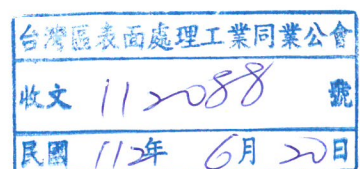 台灣區表面處理工業同業公會
收文 112088 號
民國 112年 6月 20日